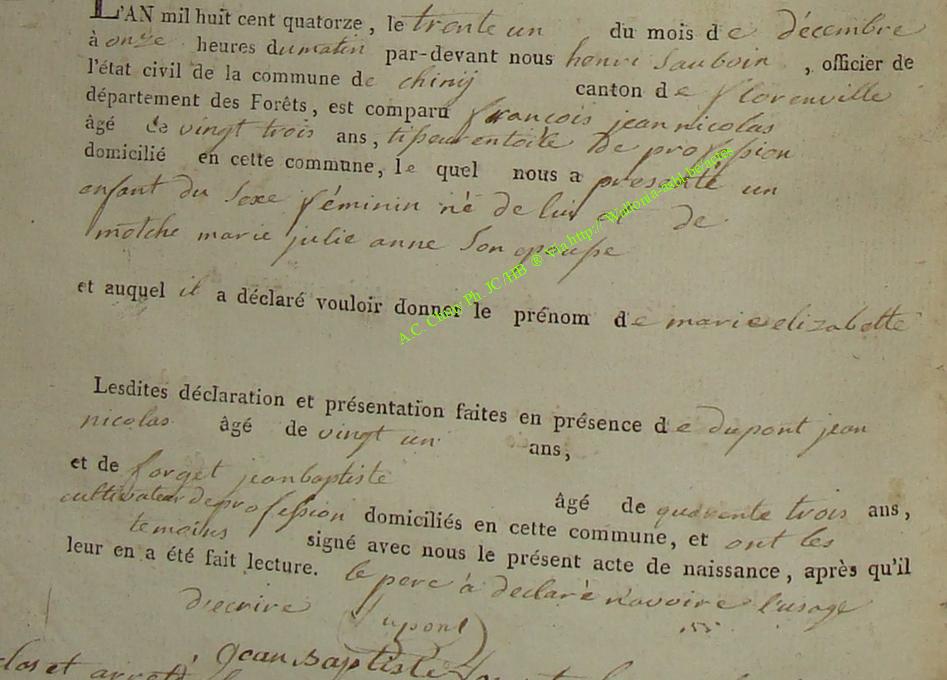 L'AN mil huit cent quatorze, le trente un du mois de décembre
à onze heures du matin par-devant nous henri Sauboin, officier de
l'état civil de la commune de chiny canton de florenville
département des Forêts, est comparu françois jean nicolas
âgé de vingt trois ans, tisseur en toile de profession
domicilié en cette commune, le quel nous a presenté un
enfant du Sexe féminin né de lui et de
motche marie julie anne Son epouse
et auquel il a déclaré vouloir donner le prénom de marie elizabette
Lesdites déclaration et présentation faites en présence de dupont jean
nicolas âgé de vingt un ans,
et de forget jean baptiste
âgé de quarente trois ans,
cultivateur de profession domiciliés en cette commune, et ont les
temoins signé avec nous le présent acte de naissance, après qu'il
leur en a été fait lecture. le pere à declaré n'avoire l'usage
d'ecrire
Dupont
clos et arreté
Jean Baptiste
A.C. Chiny Ph. JC/HB ® via http://Wallonia-asbl.be/actes